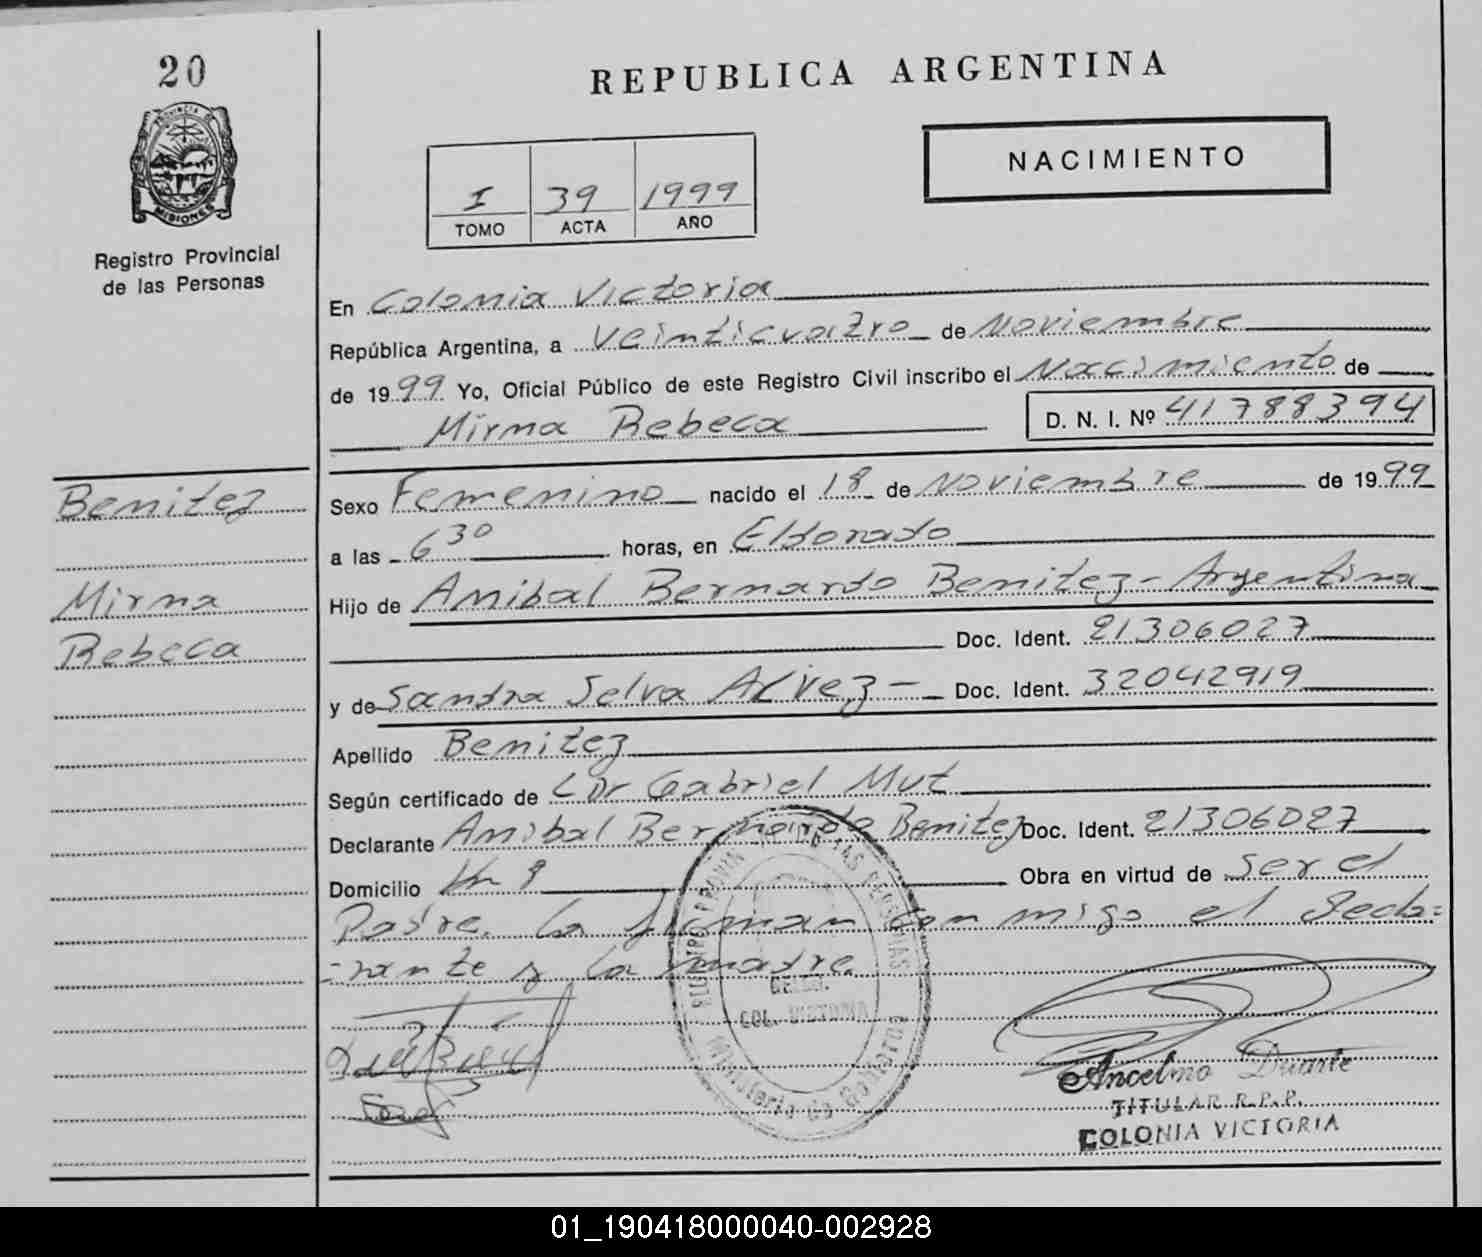 20
PROVINCIA DE
MISIONES
Registro Provincial
de las Personas
REPUBLICA ARGENTINA
NACIMIENTO
I 39 1999
TOMO ACTA AÑO
En Colonia Victoria
República Argentina, a Veinticuatro de Noviembre
de 1999 Yo, Oficial Público de este Registro Civil inscribo el Nacimiento de
Mirma Rebeca D. N. I. Nº 41788394
Benitez
Mirna
Rebeca
Sexo Femenino nacido el 18 de Noviembre de 1999
a las 6 30 horas, en Eldorado
Hijo de Anibal Bernardo Benitez - Argentina
Doc. Ident. 21306027
y de Sandra Selva Alvez - Doc. Ident. 32042919
Apellido Benitez
Según certificado de Dr Gabriel Mut
Declarante Anibal Bernardo Benitez Doc. Ident. 21306027
Domicilio Km 9 Obra en virtud de ser el
Padre. La firman con migo el Decla=
=rante y la madre
COL. VICTORIA
Ministerio de Gobierno
Ancelmo Duarte
TITULAR R.P.P.
COLONIA VICTORIA
01_190418000040-002928